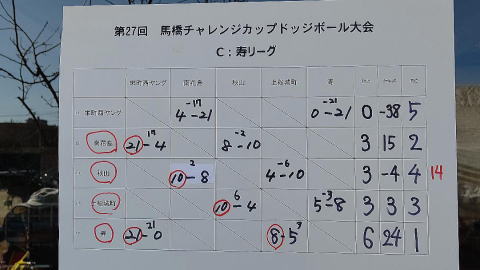 第27回 馬橋チャレンジカップドッジボール大会
C：寿リーグ
栄町西ヤング 南花島 秋山 上総城町 寿
栄町西ヤング 4-21 -17 0-21 -21 0 -38 5
南花島 21-4 17 8-10 -2 3 15 2
秋山 10-8 2 4-10 -6 3 -4 4 14
10-4 6 5-8 -3 3 3 3
寿 21-0 21 8-5 3 6 24 1